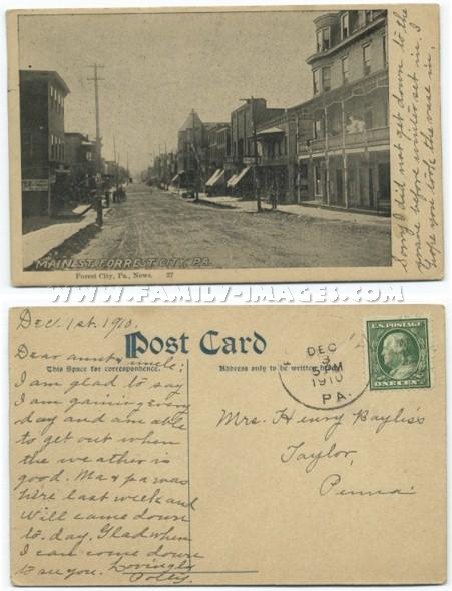 MAIN ST. FORREST CITY, PA.
Forest City, Pa., News. 27
Sorry I did not get down to the
grave before winter set in. I
hope you took the vase in.
WWW.FAMILY-IMAGES.COM
Dec. 1st. 1910.
Post Card
This Space for correspondence.
Address only to be written here.
DEC
3
5 PM
1910
PA.
U.S. POSTAGE
ONE CENT
Dear aunt & uncle:
I am glad to say
I am gaining every
day and am able
to get out when
the weather is
good. Ma & pa was
here last week and
will came down
to-day. Glad when
I can come down
to see you. Lovingly
Polly.
Mrs. Henry Bayliss
Taylor,
Penna.